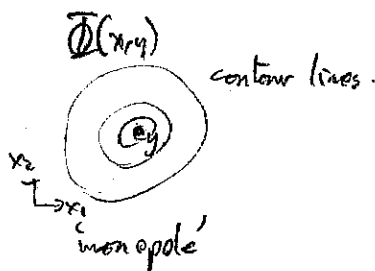 Φ(x,y)
contour lines.
y
x₂
x₁
'monopole'